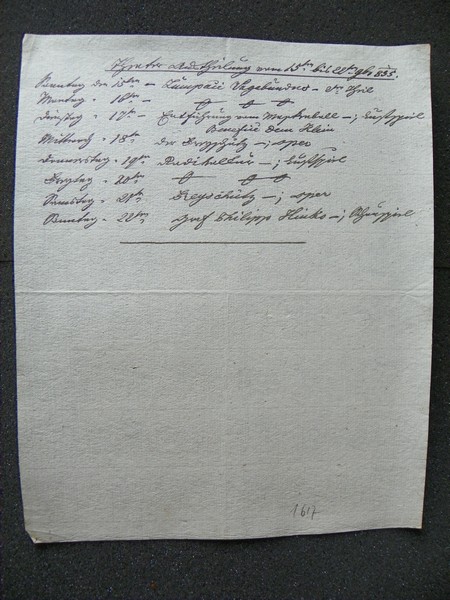 Theater Austheilung vom 15ten bis 22ten 9br 835.
Sonntag den 15ten – Lumpaci Vagabundus – Theil
Montag " 16ten –
Dienstag " 17ten – Entführung vom Maskenball –; Lustspiel
Benefice dem Klein
Mittwoch " 18ten der Freyschütz –; oper
Donnerstag " 19ten –; Lustspiel
Freytag " 20ten
Samstag " 21ten Freyschütz –; oper
Sonntag " 22ten Graf Philippo –; Schauspiel
1617